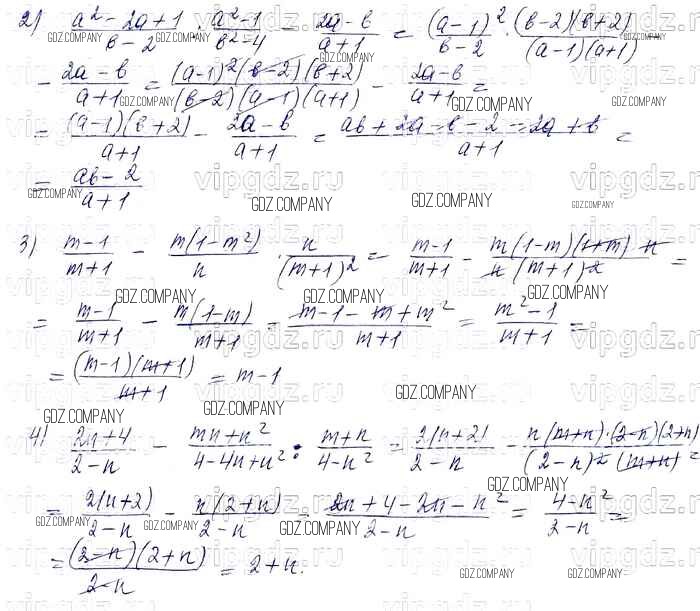 2) (a² - 2a + 1)/(в - 2) : (a² - 1)/(в² - 4) - (2a - в)/(a + 1) = (a - 1)²/(в - 2) · (в - 2)(в + 2)/((a - 1)(a + 1)) -
- (2a - в)/(a + 1) = (a - 1)²(в - 2)(в + 2)/((в - 2)(a - 1)(a + 1)) - (2a - в)/(a + 1) =
= (a - 1)(в + 2)/(a + 1) - (2a - в)/(a + 1) = (aв + 2a - в - 2 - 2a + в)/(a + 1) =
= (aв - 2)/(a + 1)
3) (m - 1)/(m + 1) - m(1 - m²)/n · n/(m + 1)² = (m - 1)/(m + 1) - m(1 - m)(1 + m) n/(n (m + 1)²) =
= (m - 1)/(m + 1) - m(1 - m)/(m + 1) = (m - 1 - m + m²)/(m + 1) = (m² - 1)/(m + 1) =
= (m - 1)(m + 1)/(m + 1) = m - 1
4) (2n + 4)/(2 - n) - (mn + n²)/(4 - 4n + n²) : (m + n)/(4 - n²) = 2(n + 2)/(2 - n) - n(m + n)·(2 - n)(2 + n)/((2 - n)²(m + n)) =
= 2(n + 2)/(2 - n) - n(2 + n)/(2 - n) = (2n + 4 - 2n - n²)/(2 - n) = (4 - n²)/(2 - n) =
= (2 - n)(2 + n)/(2 - n) = 2 + n.
GDZ.COMPANY
vipgdz.ru